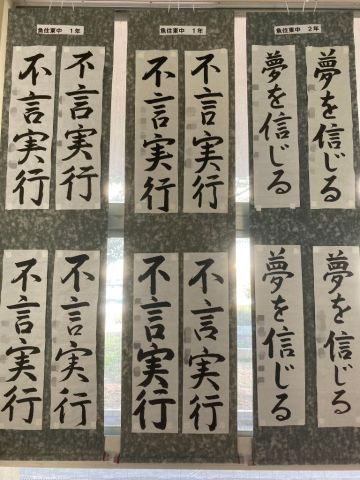 魚住東中 1年
不言実行
不言実行
不言実行
不言実行
魚住東中 1年
不言実行
不言実行
不言実行
不言実行
魚住東中 2年
夢を信じる
夢を信じる
夢を信じる
夢を信じる